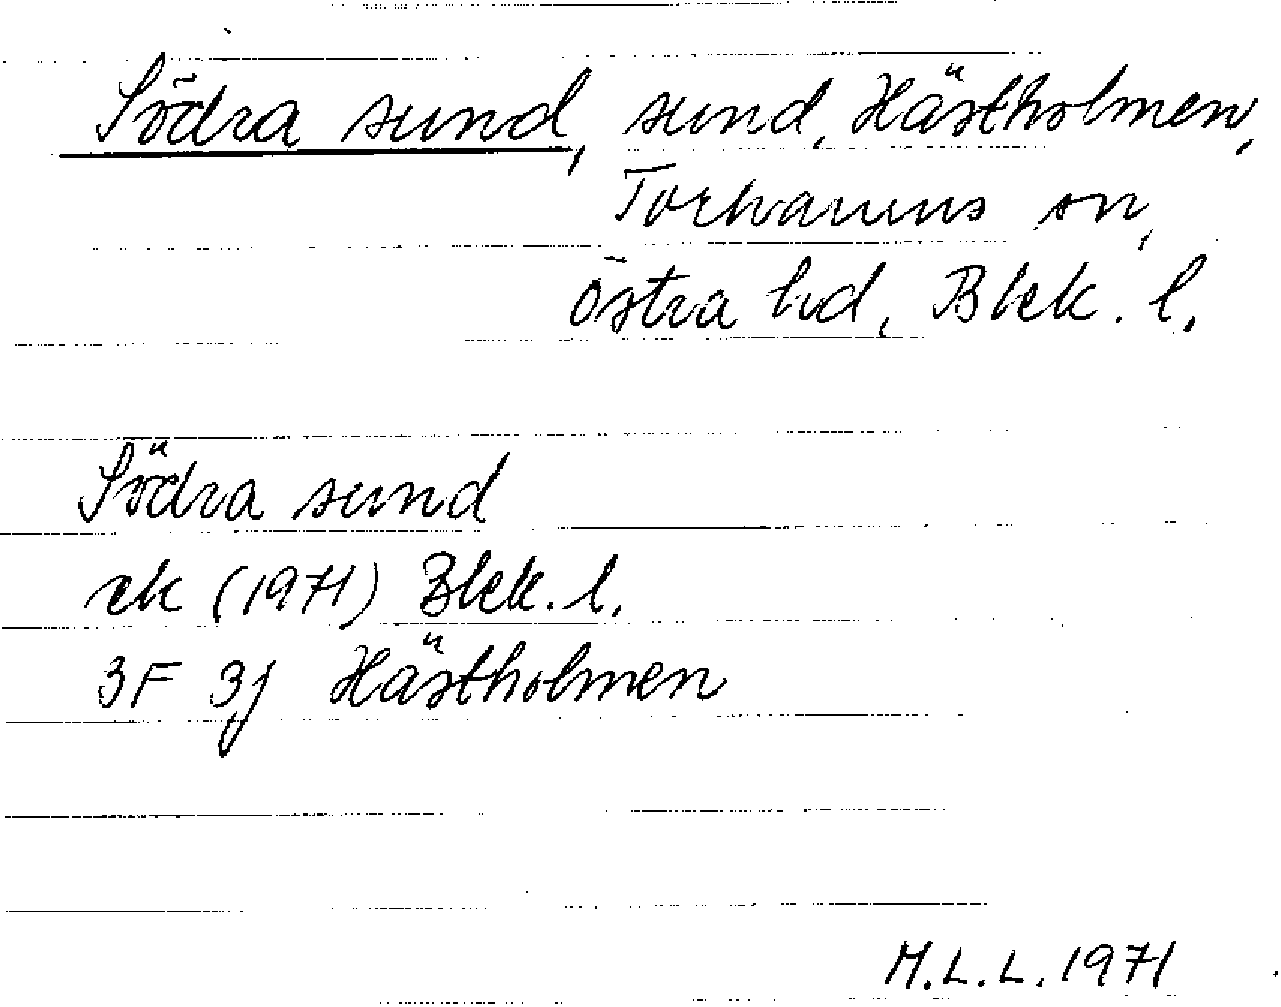 Södra sund, sund, Hästholmen,
Torhamns sn,
Östra hd, Blek. l.
Södra sund
ek (1971) Blek. l.
3F 3j Hästholmen
M.L.L. 1971